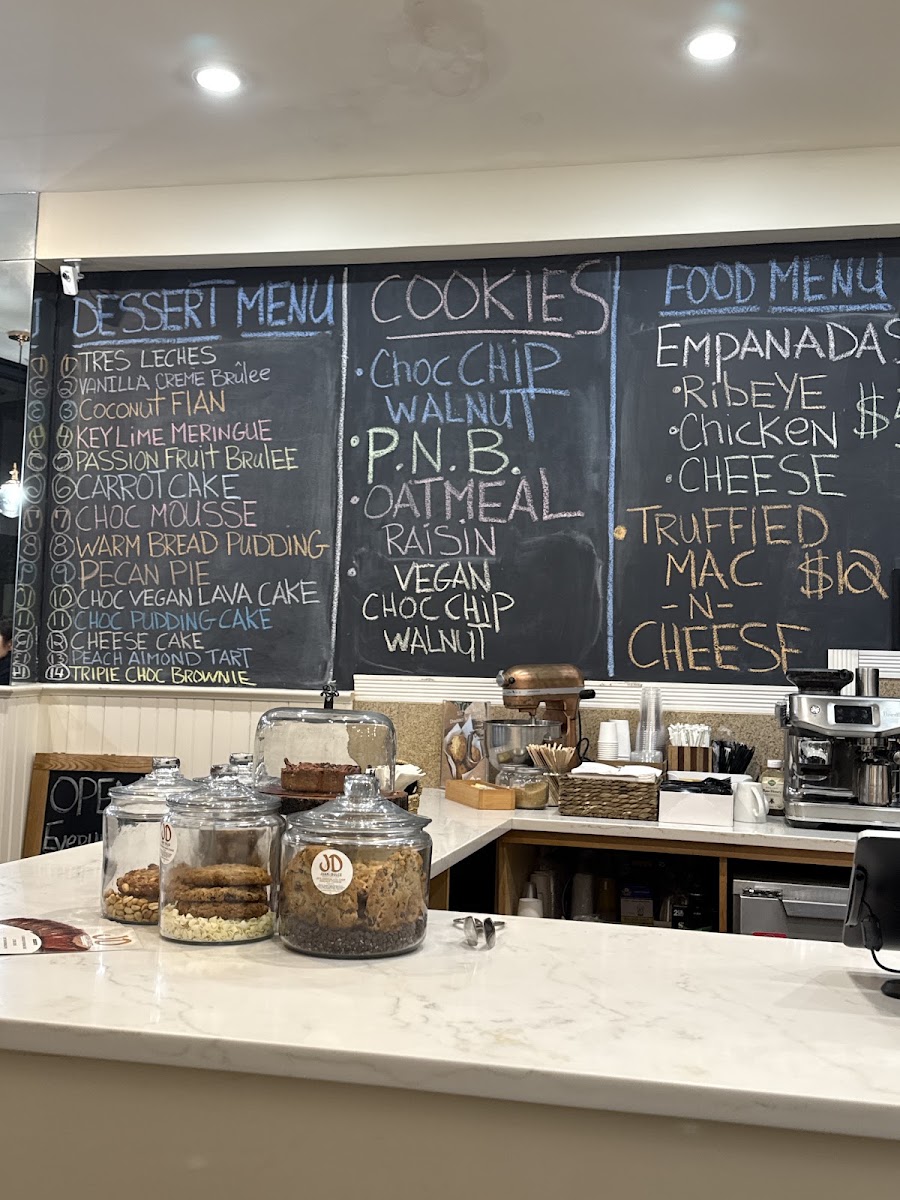 DESSERT MENU
1 TRES LECHES
2 VANILLA CREME BRûLee
3 COCONUT FLAN
4 KEY LIME MERINGUE
5 PASSION FRUIT BRULEE
6 CARROT CAKE
7 CHOC MOUSSE
8 WARM BREAD PUDDING
9 PECAN PIE
10 CHOC VEGAN LAVA CAKE
11 CHOC PUDDING CAKE
12 CHEESE CAKE
13 PEACH ALMOND TART
14 TRIPLE CHOC BROWNIE
COOKIES
• CHOC CHIP
WALNUT
• P.N.B.
• OATMEAL
RAISIN
• VEGAN
CHOC CHIP
WALNUT
FOOD MENU
EMPANADAS
• RIBEYE
• Chicken $
• CHEESE
• TRUFFLED
MAC $12
-N-
CHEESE
OPEN
JD
JD